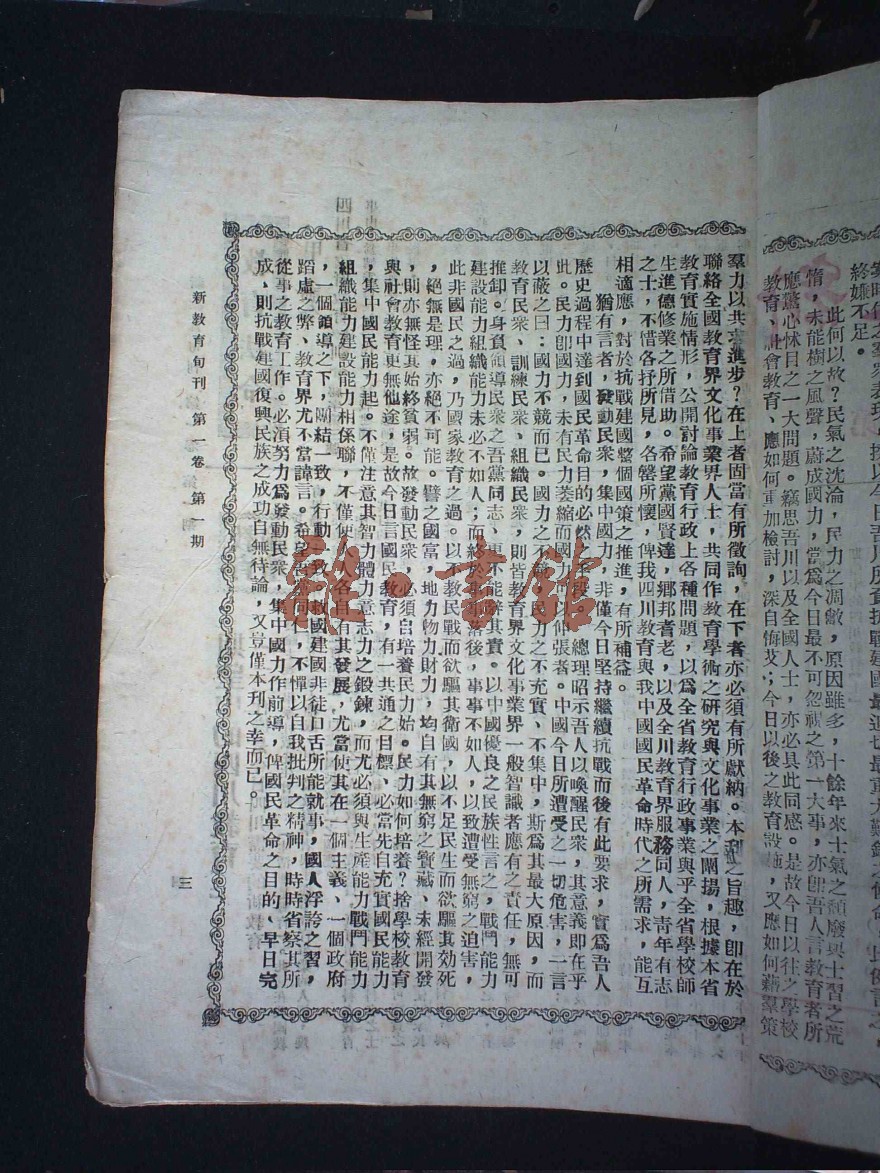 終嫌不足。
此何以故？民氣之沈淪，民力之凋敝，原因雖多，十餘年來士氣之頹廢與士習之荒
惰，未能樹之風聲，蔚成國力，當為今日最不可忽視之第一大事，亦卽吾人言教育者所
應驚心怵目之一大問題。竊思吾川以及全國人士，亦必具此同感。是故今日以往之學校
教育、社會教育、應如何重加檢討，深自悔艾；今日以後之教育設施，又應如何藉羣策
羣力以共求進步？在上者固當有所徵詢，在下者亦必須有所獻納。本刊之旨趣，卽在於
聯絡全國教育界文化事業界人士，共同作教育學術之研究與文化事業之闡揚，根據本省
教育實施情形，公開討論教育行政上各種問題，以為全省教育行政事業與乎全省學校師
生進德修業之所借助。希望黨國賢達，鄉邦耆老，以及全川教育界服務同人，青年有志
之士，不惜各抒所見，各罄所懷，俾我四川教育與我中國國民革命時代之所需求，能互
相適應，對於抗戰建國整個國策之推進，有所補益。
猶有言者，發動民衆，集中國力，非僅今日堅持繼續抗戰而後有此要求，實為吾人
歷史過程中達到國民革命目的必然手段。總理昭示吾人以喚醒民衆，其意義卽在乎
此。民力卽國力，未有民力萎縮而國力伸張者。中國今日所遭受之一切危害，一言
以蔽之曰：國力不競而已。國力之不競，民力之不充實、不集中，斯為其最大原因，而
教育民衆、訓練民衆、組織民衆，則皆教育界文化事業界一般智識者應有之責任，無可
推卸。身負領導民衆之吾黨同志、更不能辭其責。以中國優良之民族性言之，戰鬥能力
建設能力組織能力未必不如人；而終於落後，事事不如人，以致遭受無窮之迫害，
此非國民之過，乃國家教育之過。以不教民戰而欲驅其衛國，以不足民生而欲驅其效死
，絕無是理，亦絕不可能。譬之國富，地力物力財力，均自有其無窮之寶藏、未經開發
，則亦無怪其始終貧弱。故發動民衆，必須自培養民力始。民力如何培養？捨學校教育
與社會教育更無他途，是故今日言國民教育，有一共通之目標、必當先自充實國民能力
，集中國民能力起。不僅注意其智力體力意志力之鍛鍊，而尤必須與生產能力戰鬥能力
組織能力建設能力相係聯，不僅使人人各自有其發展，尤當使其在一個主義、一個政府
，一個領導之下，團結一致，行動一致，救國建國非徒口舌所能就事，國人浮誇之習，
蹈虛之弊、教育界尤不當諱言。希望同仁，不憚以自我批判之精神，時時省察其所
從事之教育工作。必須努力為發動民衆，集中國力作前導，俾國民革命之目的、早日完
成、則抗戰建國復興民族之成功自無待論，又豈僅本刊之幸而已。
新教育旬刊 第一卷 第一期
三
龍·書館